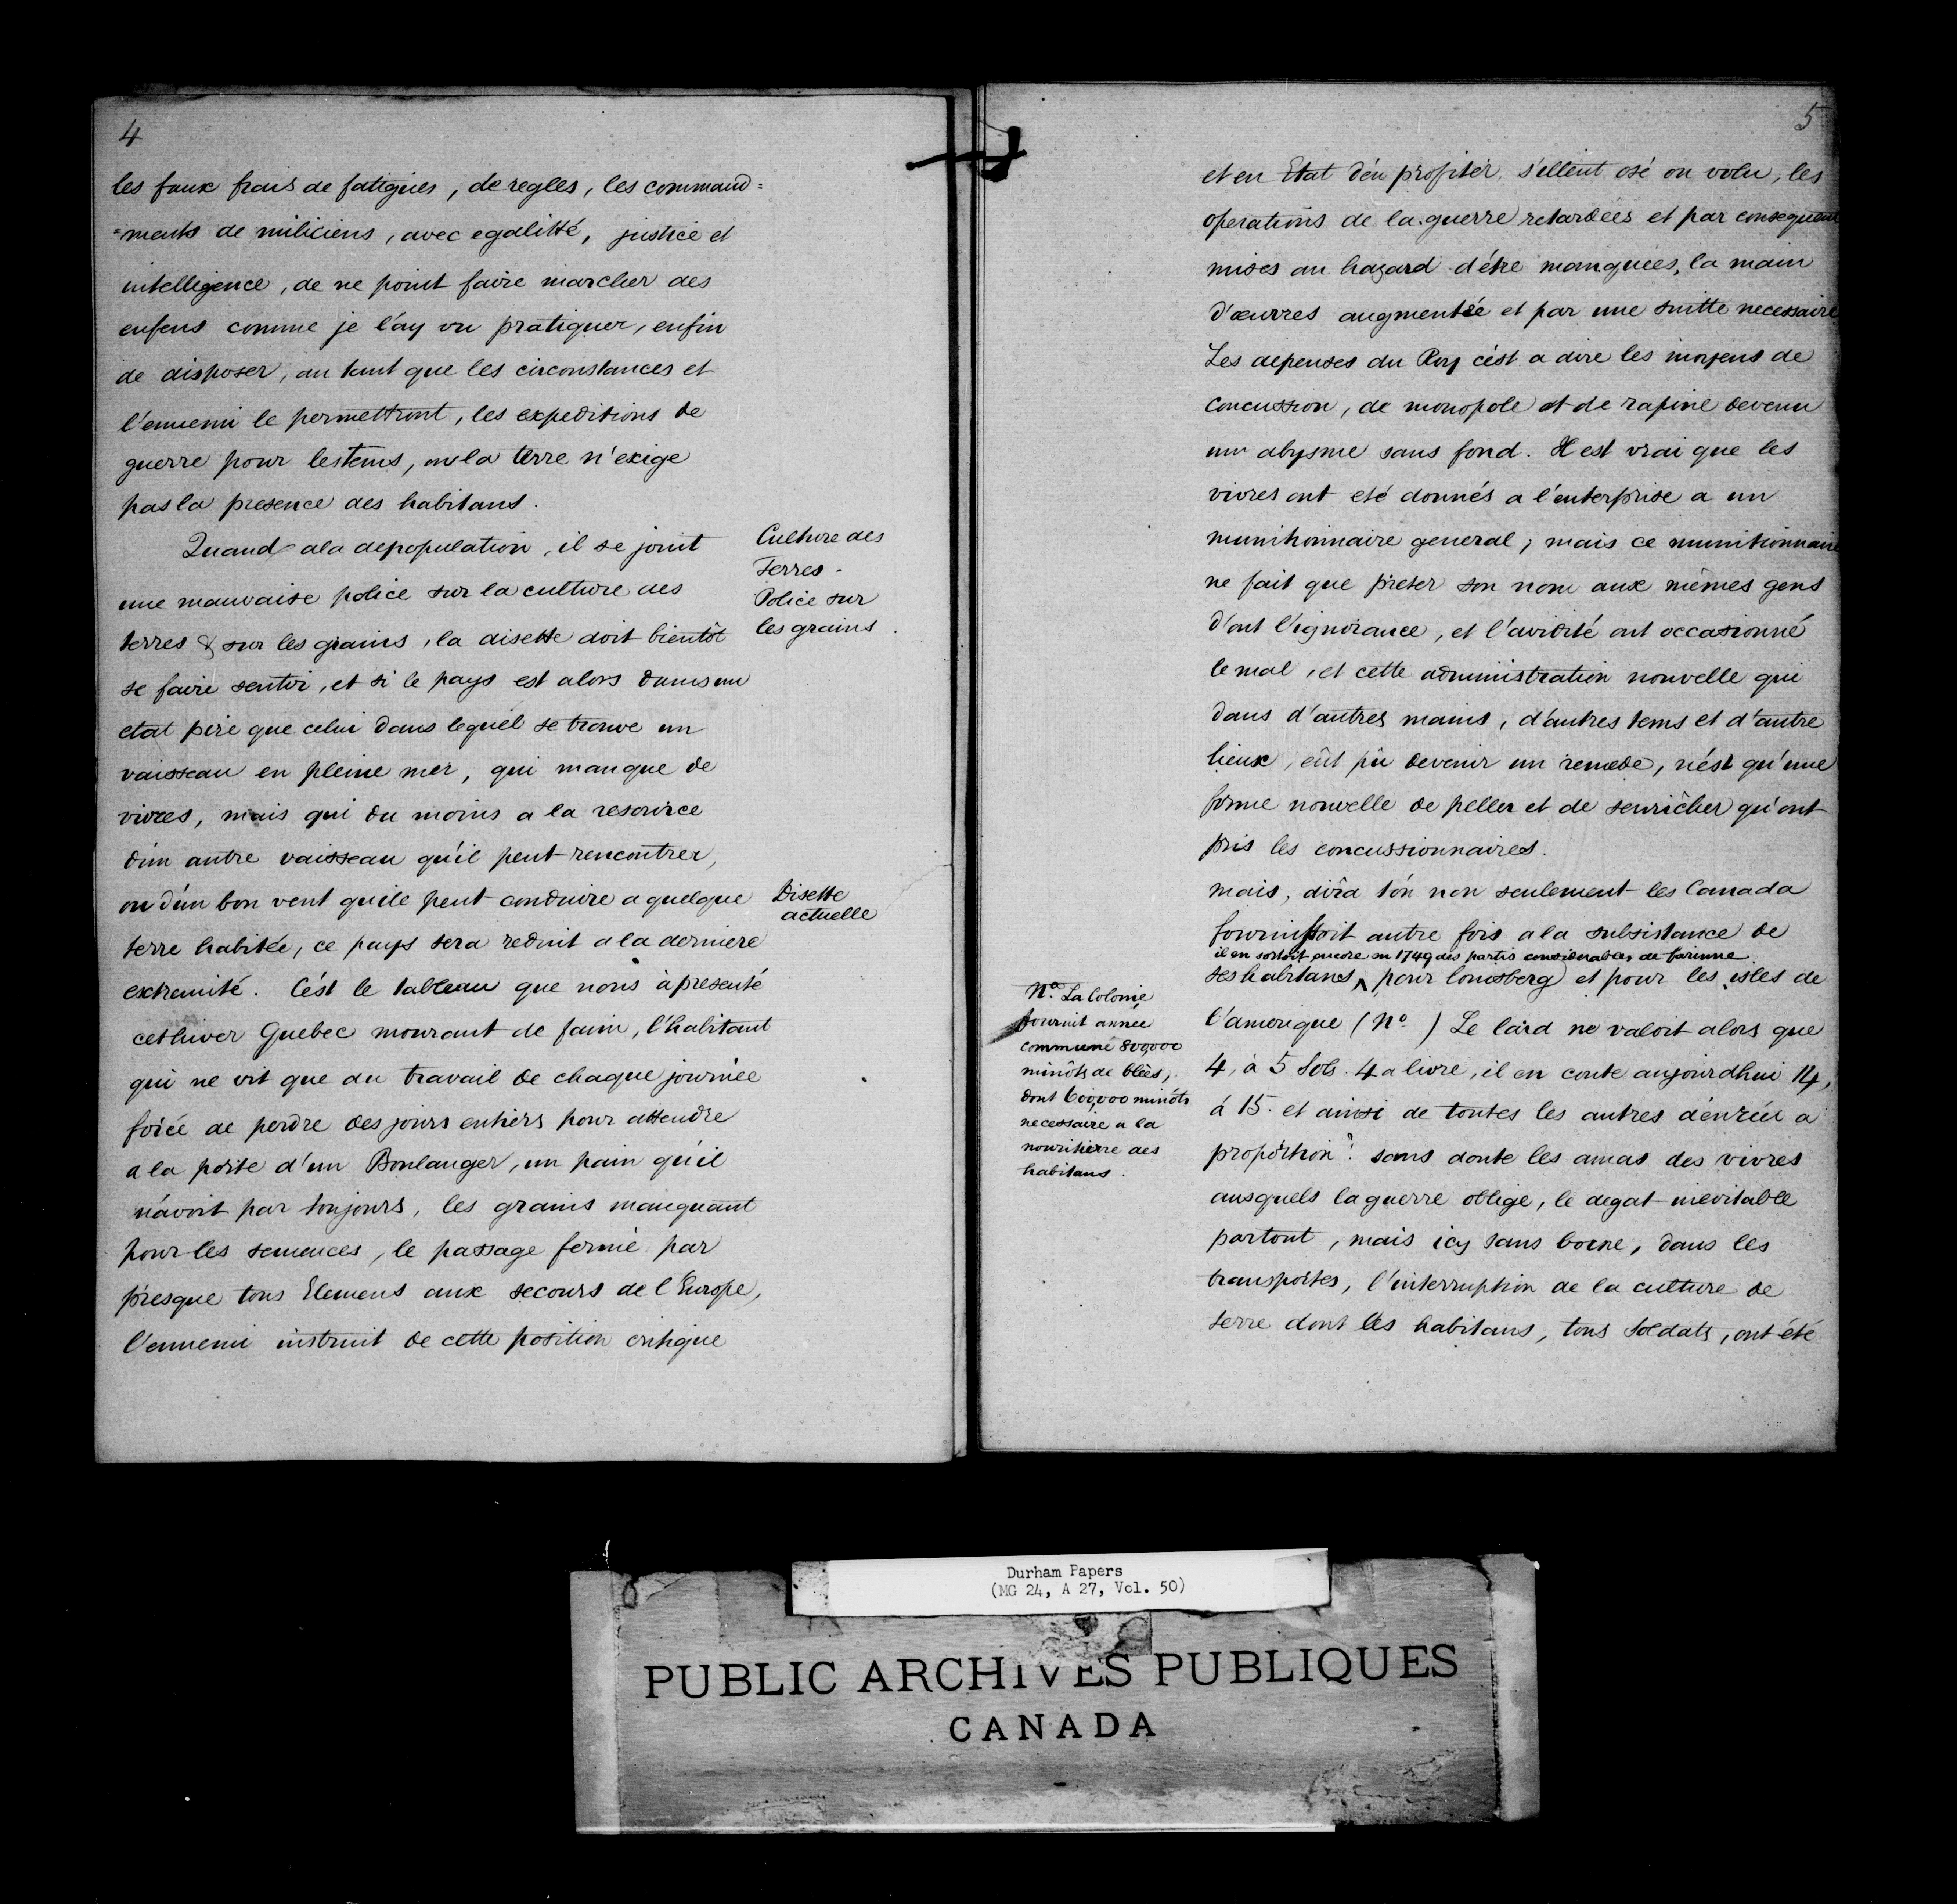 4
les faux frais de fatigues, de regles, les command=
=ments de miliciens, avec egalitté, justice et
intelligence, de ne point faire marcher des
enfens comme je l'ay vu pratiquer, enfin
de disposer, au tant que les circonstances et
l'ennemi le permettront, les expeditions de
guerre pour lestems, ou la terre n'exige
pas la presence des habitans.
Quand a la depopulation, il se joint
une mauvaise police sur la culture des
terres & sur les grains, la disette doit bientôt
se faire sentir, et si le pays est alors dans un
etat pire que celui dans lequel se trouve un
vaisseau en pleine mer, qui manque de
vivres, mais qui du moins a la resource
d'un autre vaisseau qu'il peut rencontrer,
ou d'un bon vent quile peut conduire a quelque
terre habitée, ce pays sera reduit a la derniere
extremité. C'ést le tableau que nous à presenté
cethiver Quebec mourant de faim, l'habitant
qui ne vit que du travail de chaque journée
forcé de perdre des jours entiers pour attendre
a la porte d'un Boulanger, un pain qu'il
n'avoit par toujours, les grains manquant
pour les semences, le passage fermé par
presque tous Elemens aux secours de l'Europe,
l'ennemi instruit de cette position critique
Culture des
Terres.
Police sur
les grains.
Disette
actuelle
5
et en Etat d'en profiter s'ellent osé ou volu, les
operations de la guerre retardées et par consequent
mises au hazard d'être manquées, la main
d'œuvres augmentée et par une suitte necessaire
Les depenses du Roy c'ést a dire les moyens de
concussion, de monopole et de rapine devenu
un abysme sans fond. Il est vrai que les
vivres ont eté donnés a l'enterprise a un
munitionnaire general; mais ce munitionnaire
ne fait que preter son nom aux mêmes gens
d'ont l'ignorance, et l'avidité ont occasionné
le mal, et cette administration nouvelle qui
dans d'autres mains, d'autres tems et d'autre
lieux, eût pû devenir un remede, n'ést qu'une
forme nouvelle de peller et de senricher qu'ont
pris les concussionnaires.
mais, dira t'on non seulement les Canada
fournissoit autre fois a la subsistance de
il en sortoit encore en 1749 des partis considerables de farinne
ses habitans ^ pour louisberg et pour les isles de
l'amerique (No. ) Le lard ne valoit alors que
4, à 5 Sols. 4 a livre, il en coute aujourdhui 14,
á 15. et ainsi de toutes les autres denrées a
proportion. sans doute les amas des vivres
ausquels la guerre oblige, le degat inevitable
partout, mais icy sans borne, dans les
transportes, l'interruption de la culture de
terre dont les habitans, tous soldats, ont été
No. La Colonie
fournit année
commune 800,000
minôts de blées,
dont 600,000 minôts
necessaire a la
nouritierre des
habitans.
Durham Papers
(MG 24, A 27, Vol. 50)
PUBLIC ARCHIVES PUBLIQUES
CANADA